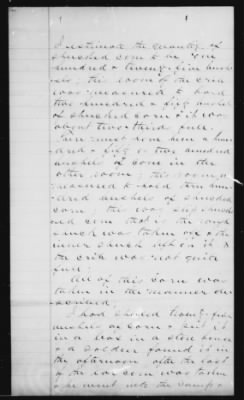 I estimate the quantity of
shucked corn to be one
hundred & twenty five bush
els, this room of the crib
was measured to hold
two hundred & fifty bushels
of shucked corn & it was
about two-third full.
There must have been a hun
dred & fifty or two hundred
bushels of corn in the
other room, this room
measured to hold three hun
dred bushels of shucked
corn, this was slip shuck
ed corn, that is the rough
shuck was taken off & the
inner shuck left on it &
the crib was not quite
full.
All of this corn was
taken in the manner des
cribed.
I had shelled twenty five
bushels of corn & put it
in a box in a store house
& a soldier found it in
the afternoon after the last
of the ear corn was taken
& he went into the camp &